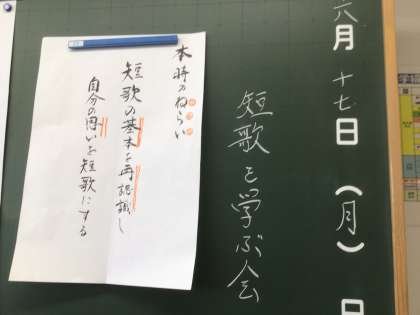 六月十七日（月）日
短歌を学ぶ会
本時のねらい
短歌の基本を再認識し
自分の思いを短歌にする